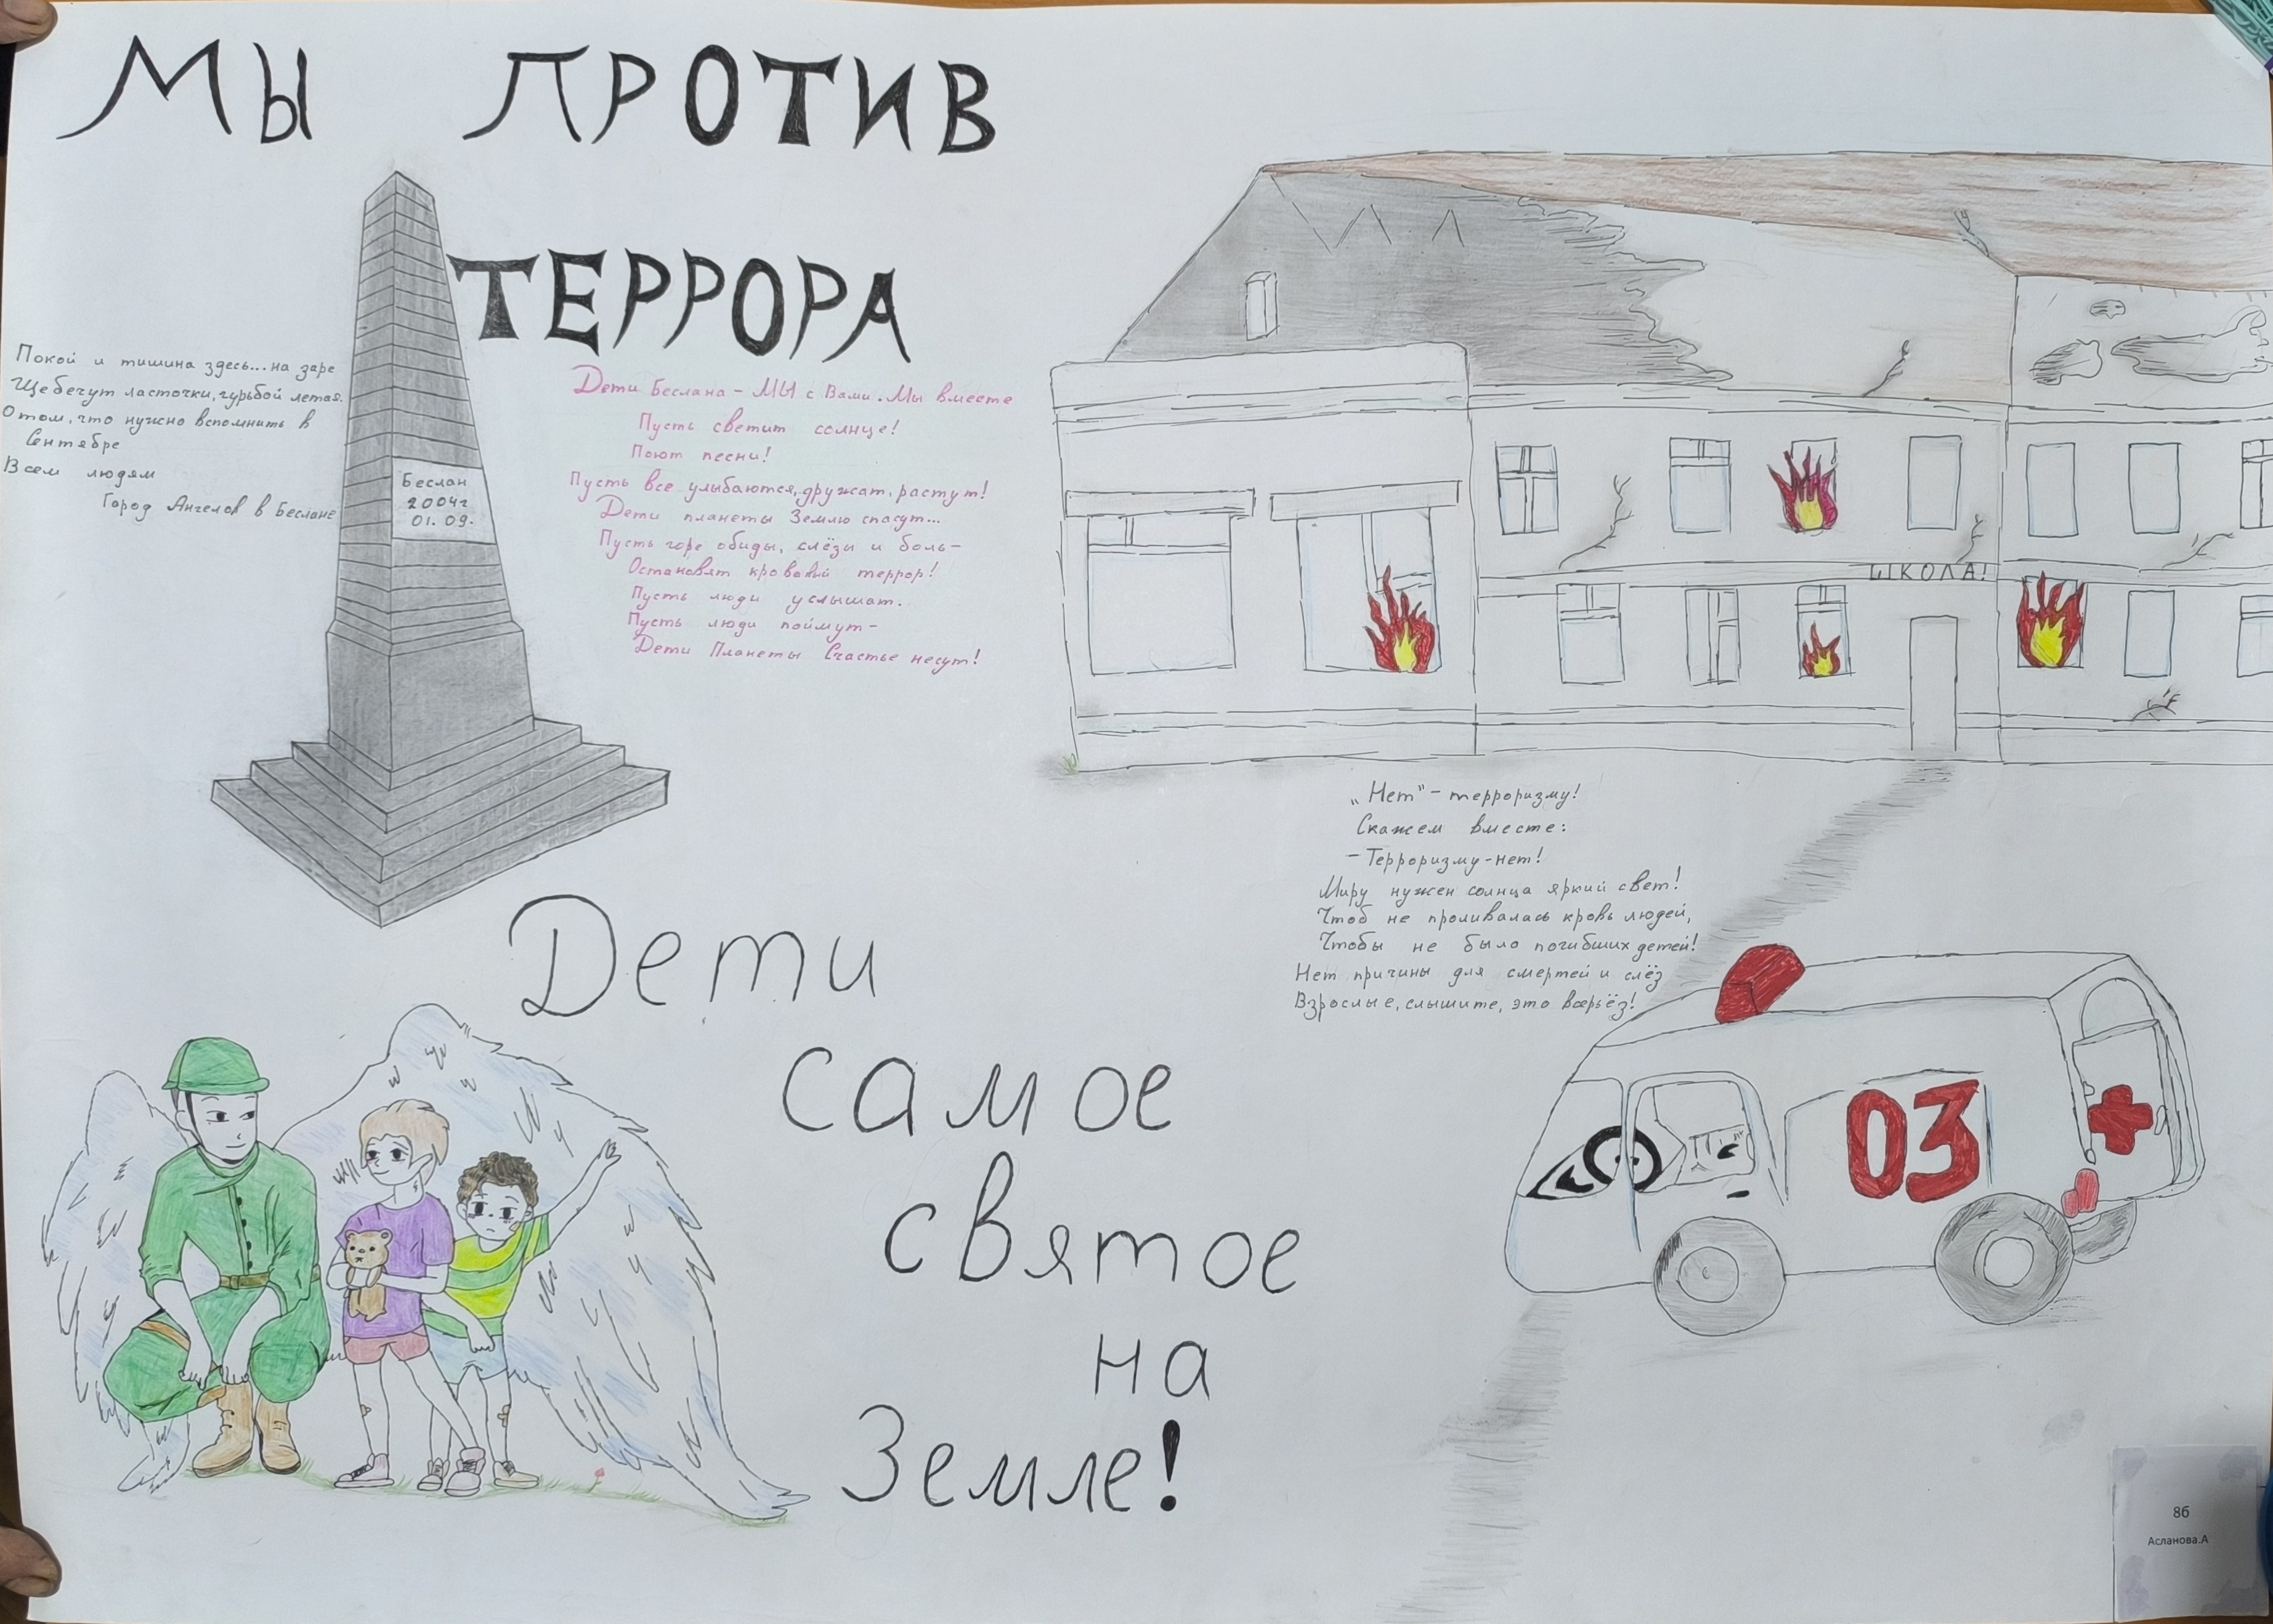 МЫ ПРОТИВ
ТЕРРОРА
Покой и тишина здесь...на заре
Щебечут ласточки, гурьбой летая.
О том, что нужно вспомнить в
Сентябре
Всем людям
Город Ангелов в Беслане
Беслан
2004г
01.09.
Дети Беслана - МЫ с Вами. Мы вместе
Пусть светит солнце!
Поют песни!
Пусть все улыбаются, дружат, растут!
Дети планеты Землю спасут...
Пусть горе обиды, слёзы и боль-
Остановят кровавый террор!
Пусть люди услышат.
Пусть люди поймут-
Дети Планеты Счастье несут!
ШКОЛА!
„Нет" - терроризму!
Скажем вместе:
- Терроризму - нет!
Миру нужен солнца яркий свет!
Чтоб не проливалась кровь людей,
Чтобы не было погибших детей!
Нет причины для смертей и слёз
Взрослые, слышите, это всерьёз!
03
Дети
самое
святое
на
Земле!
8б
Асланова.А